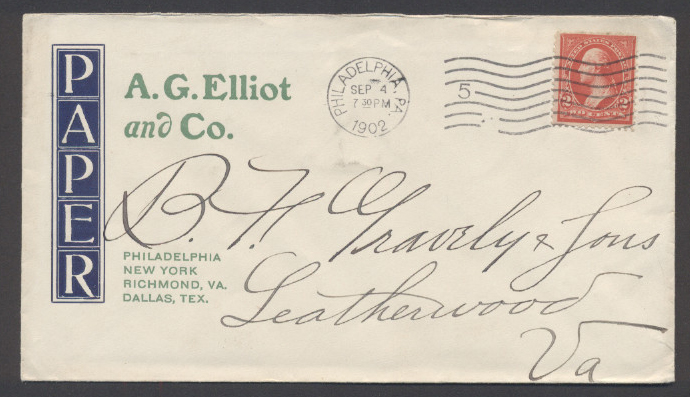 PAPER
A.G. Elliot
and Co.
PHILADELPHIA
NEW YORK
RICHMOND, VA.
DALLAS, TEX.
PHILADELPHIA, PA.
SEP 4
7 30 PM
1902
5
2 2
B. F. Gravely & Sons
Leatherwood
Va